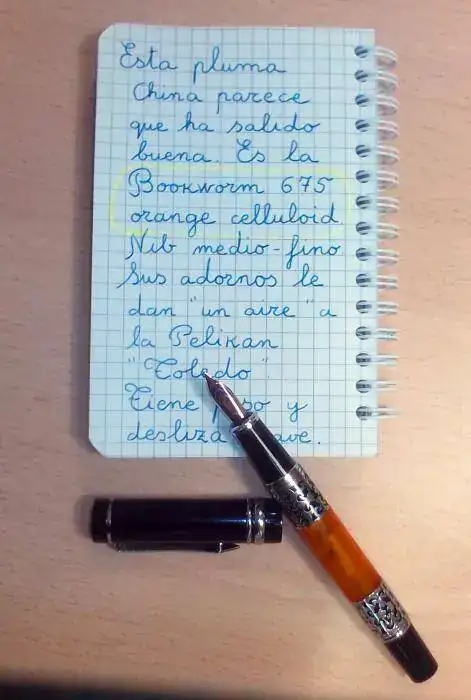 Esta pluma
China parece
que ha salido
buena. Es la
Bookworm 675
orange celluloid
Nib medio-fino
Sus adornos le
dan "un aire" a
la Pelikan
"Toledo".
Tiene peso y
desliza suave.